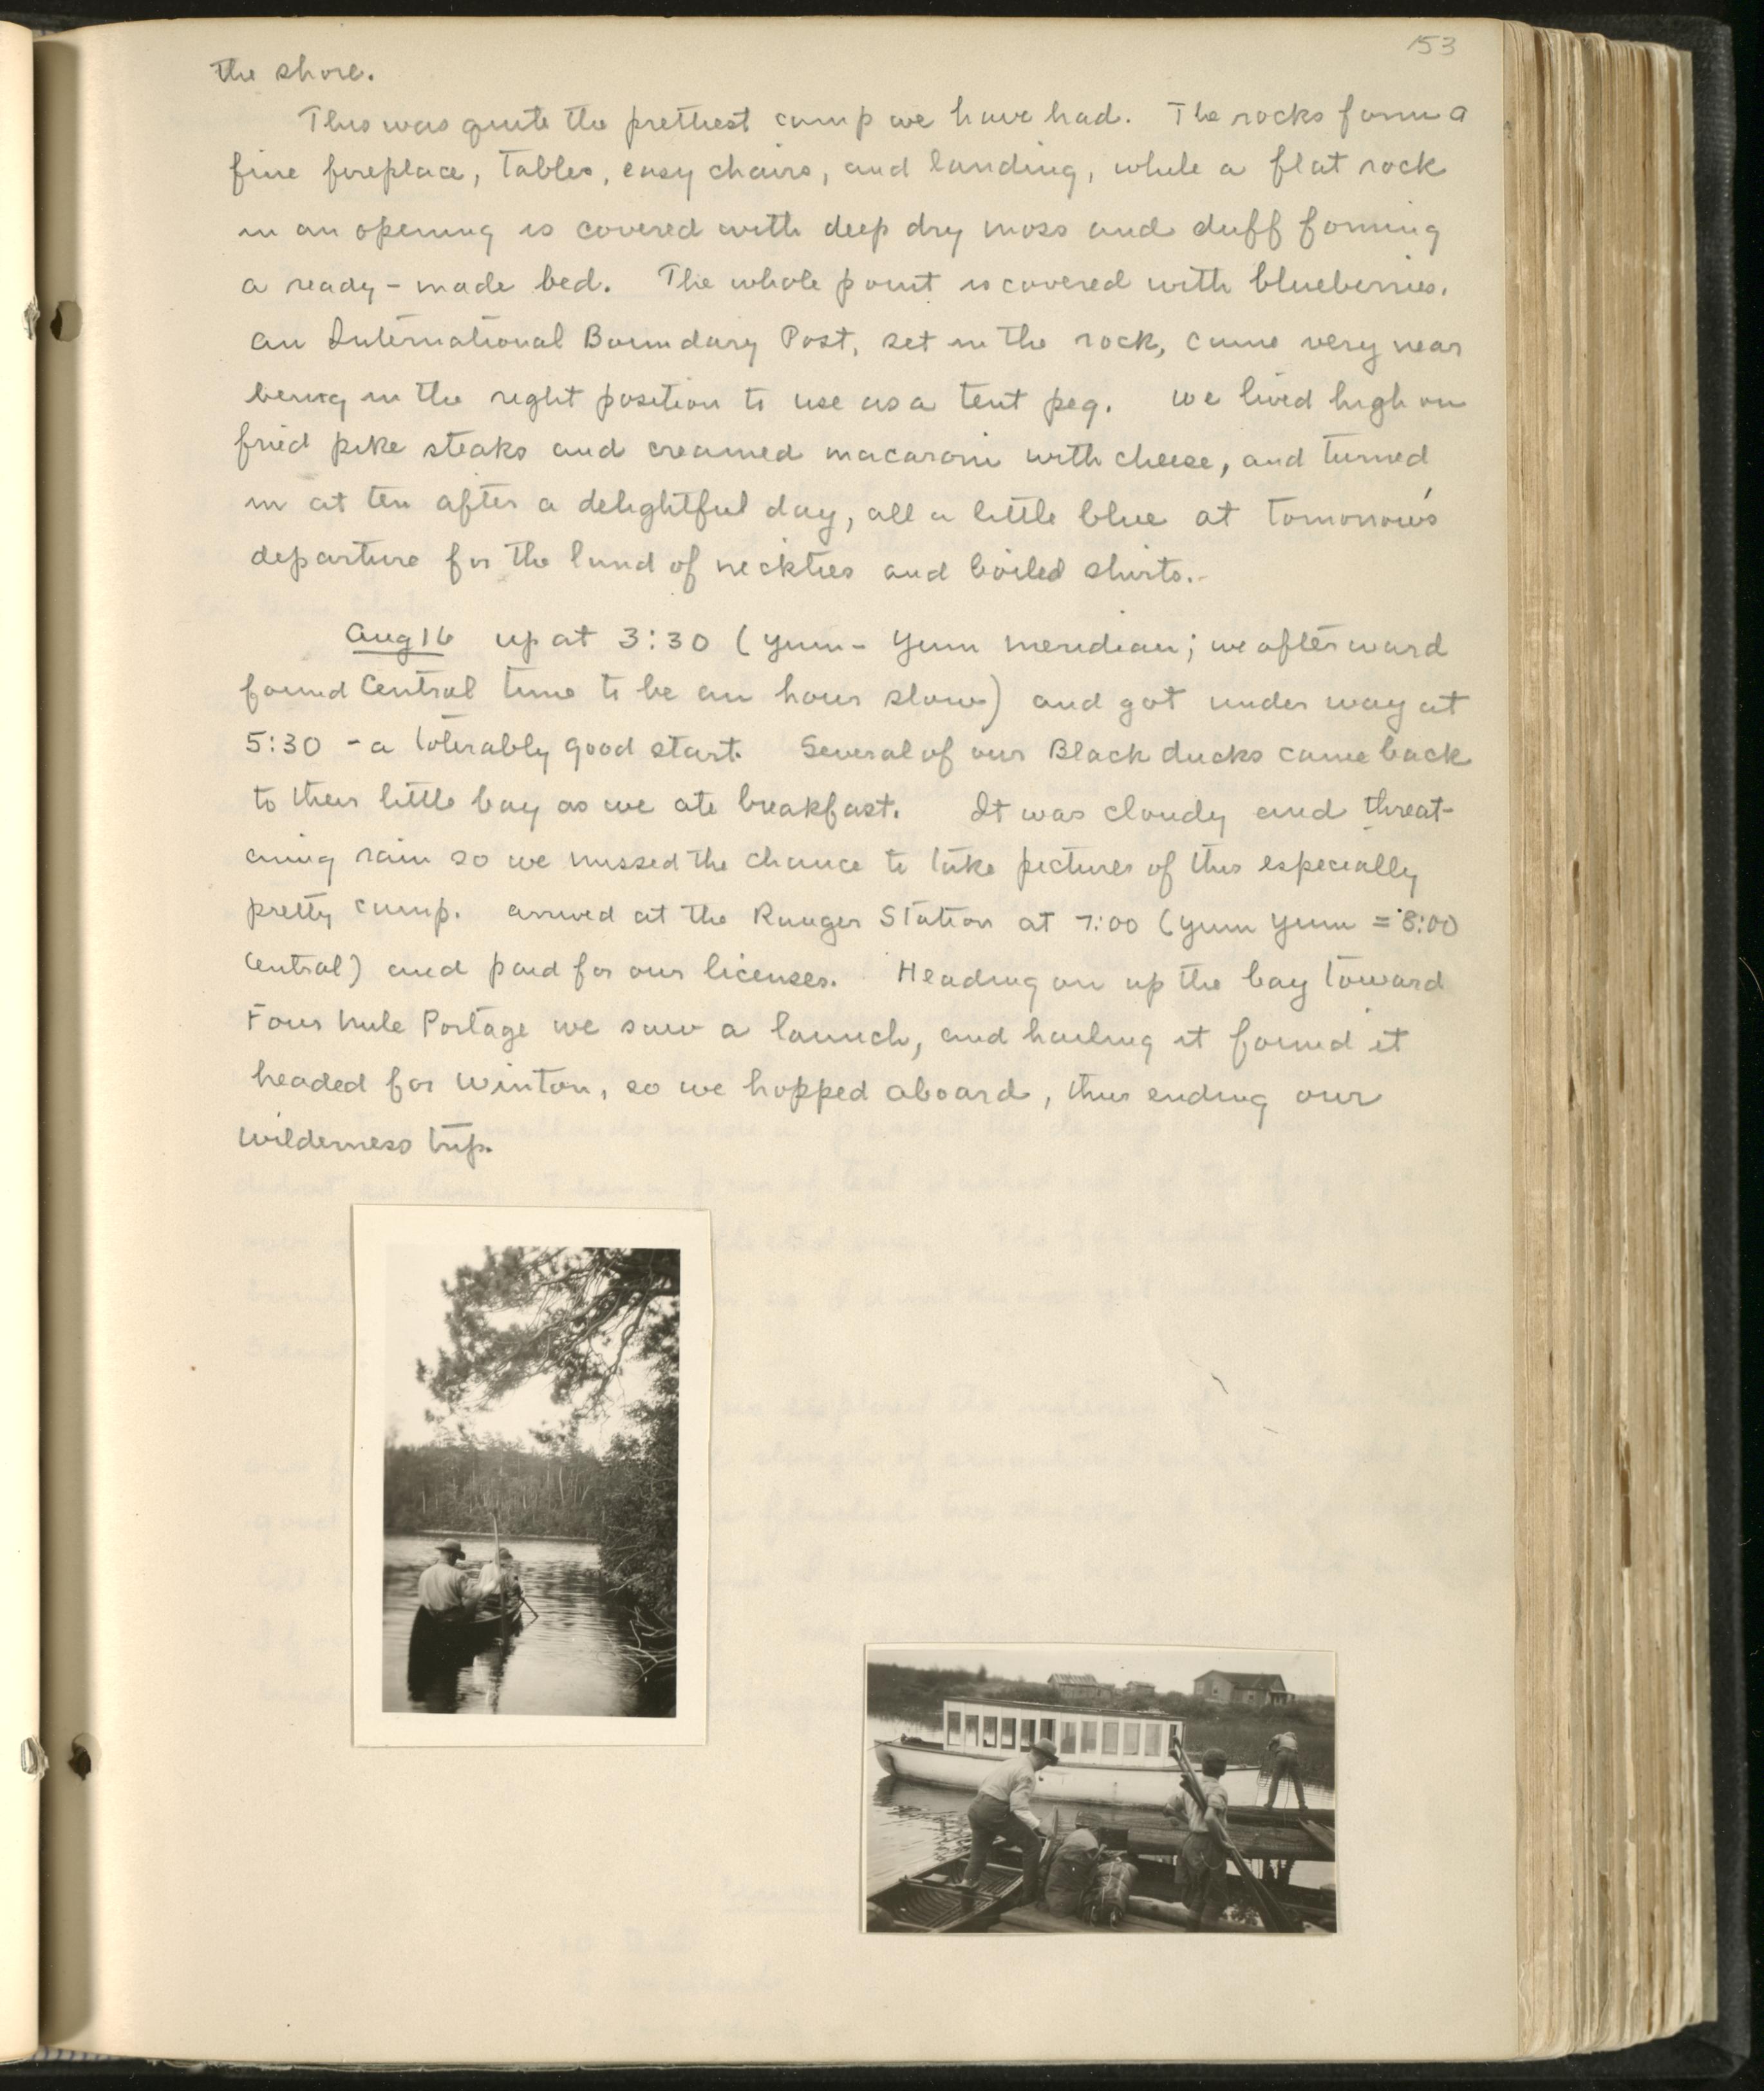 153
the shore.
This was quite the prettiest camp we have had. The rocks form a
fine fireplace, tables, easy chairs, and landing, while a flat rock
in an opening is covered with deep dry moss and duff forming
a ready-made bed. The whole point is covered with blueberries.
An International Boundary Post, set in the rock, came very near
being in the right position to use as a tent peg. We lived high on
fried pike steaks and creamed macaroni with cheese, and turned
in at ten after a delightful day, all a little blue at tomorrow's
departure for the land of neckties and boiled shirts.-
Aug 16 up at 3:30 (Yum-Yum meridian; we afterward
found Central time to be an hour slow) and got under way at
5:30 - a tolerably good start. Several of our Black ducks came back
to their little bay as we ate breakfast. It was cloudy and threat-
ening rain so we missed the chance to take pictures of this especially
pretty camp. Arrived at the Ranger Station at 7:00 (Yum Yum = 8:00
Central) and paid for our licenses. Heading on up the bay toward
Four Mile Portage we saw a launch, and hailing it found it
headed for Winton, so we hopped aboard, thus ending our
wilderness trip.